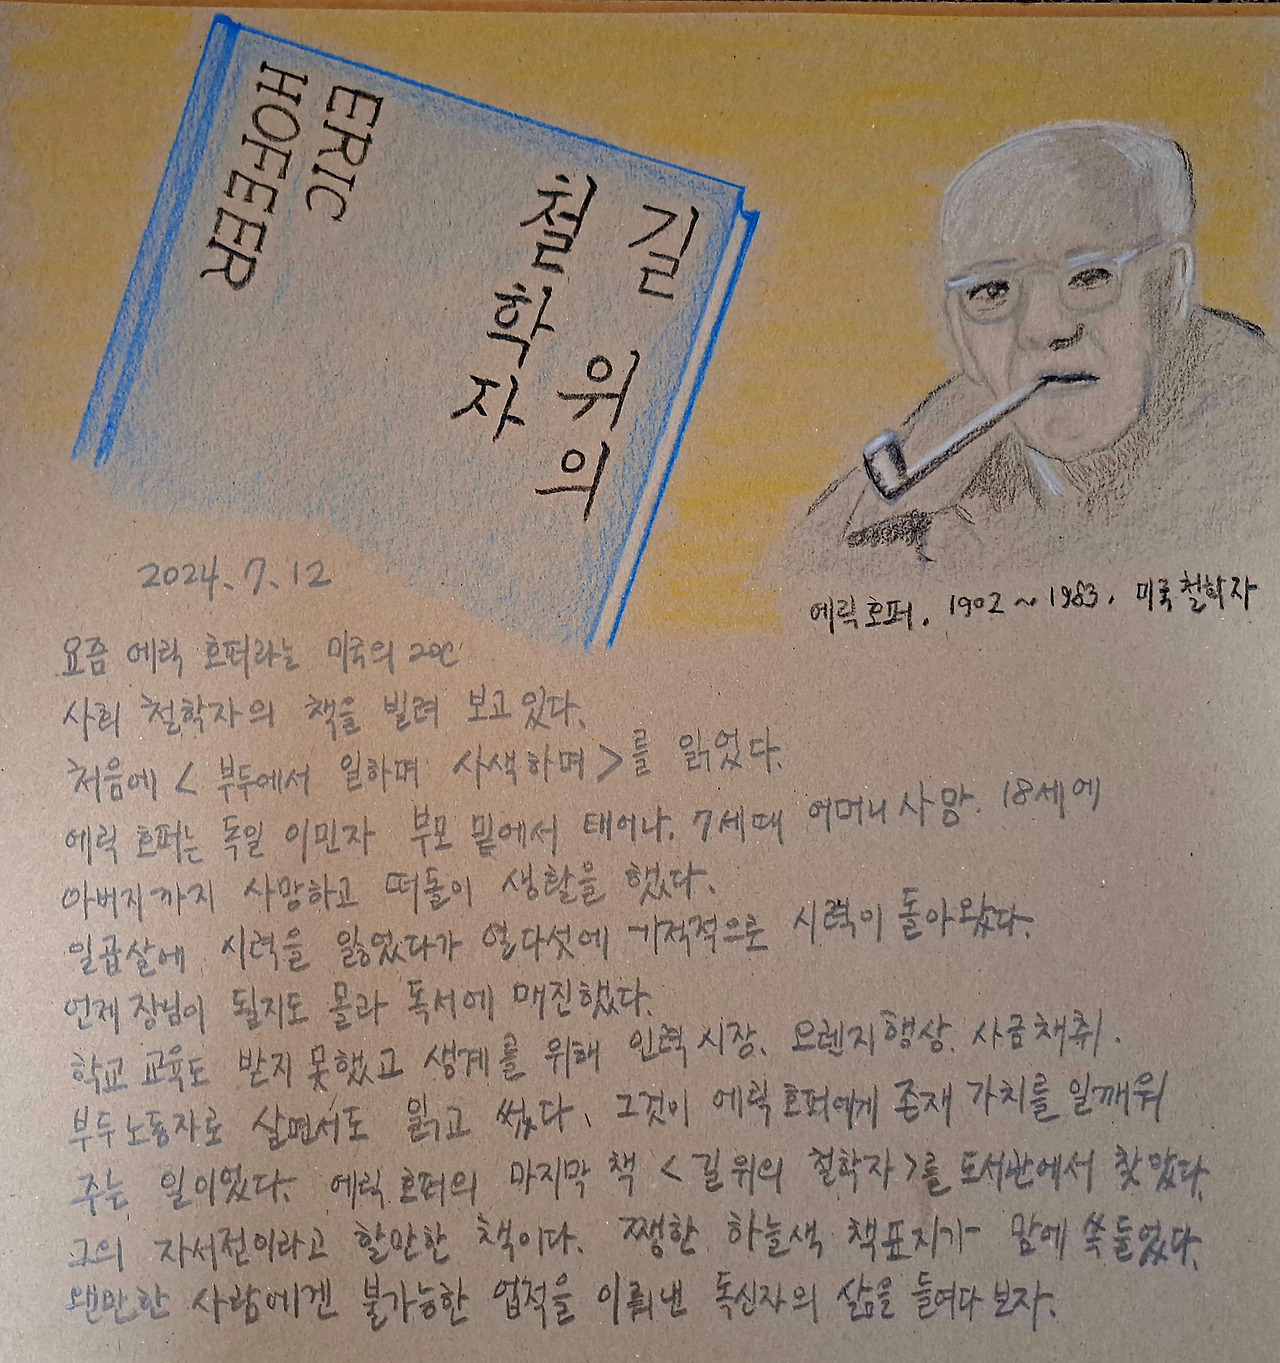 ERIC
HOFEER
길 위의
철학자
에릭 호퍼. 1902 ~ 1983. 미국 철학자
2024. 7. 12
요즘 에릭 호퍼라는 미국의 20C
사회 철학자의 책을 빌려 보고 있다.
처음에 < 부두에서 일하며 사색하며 >를 읽었다.
에릭 호퍼는 독일 이민자 부모 밑에서 태어나. 7세때 어머니 사망. 18세에
아버지까지 사망하고 떠돌이 생활을 했다.
일곱살에 시력을 잃었다가 열다섯에 기적적으로 시력이 돌아왔다.
언제 장님이 될지도 몰라 독서에 매진했다.
학교 교육도 받지 못했고 생계를 위해 인력시장. 오렌지 행상. 사금채취.
부두노동자로 살면서도 읽고 썼다. 그것이 에릭 호퍼에게 존재 가치를 일깨워
주는 일이었다. 에릭 호퍼의 마지막 책 < 길 위의 철학자 >를 도서관에서 찾았다.
그의 자서전이라고 할만한 책이다. 쨍한 하늘색 책표지가 맘에 쏙 들었다.
왠만한 사람에겐 불가능한 업적을 이뤄낸 독신자의 삶을 들여다 보자.